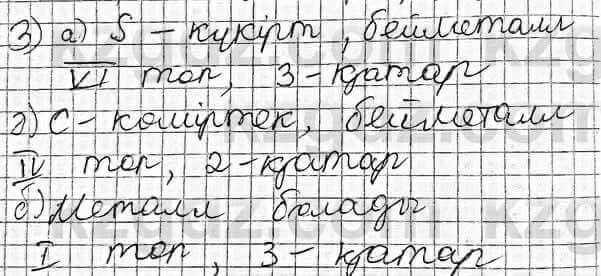 3) а) S - күкірт, бейметалл
VI топ, 3-қатар
г) С - көміртек, бейметалл
IV топ, 2-қатар
б) Металл болады
I топ, 3-қатар